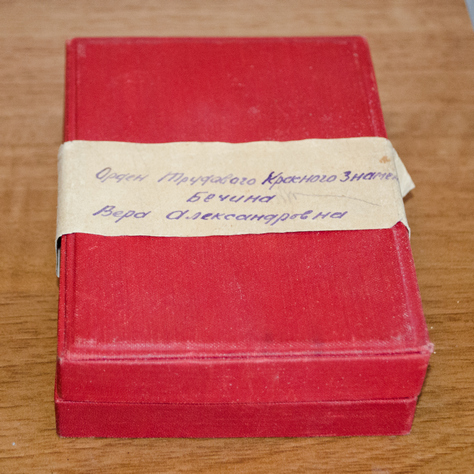 Орден Трудового Красного Знамени
Бечина
Вера Александровна